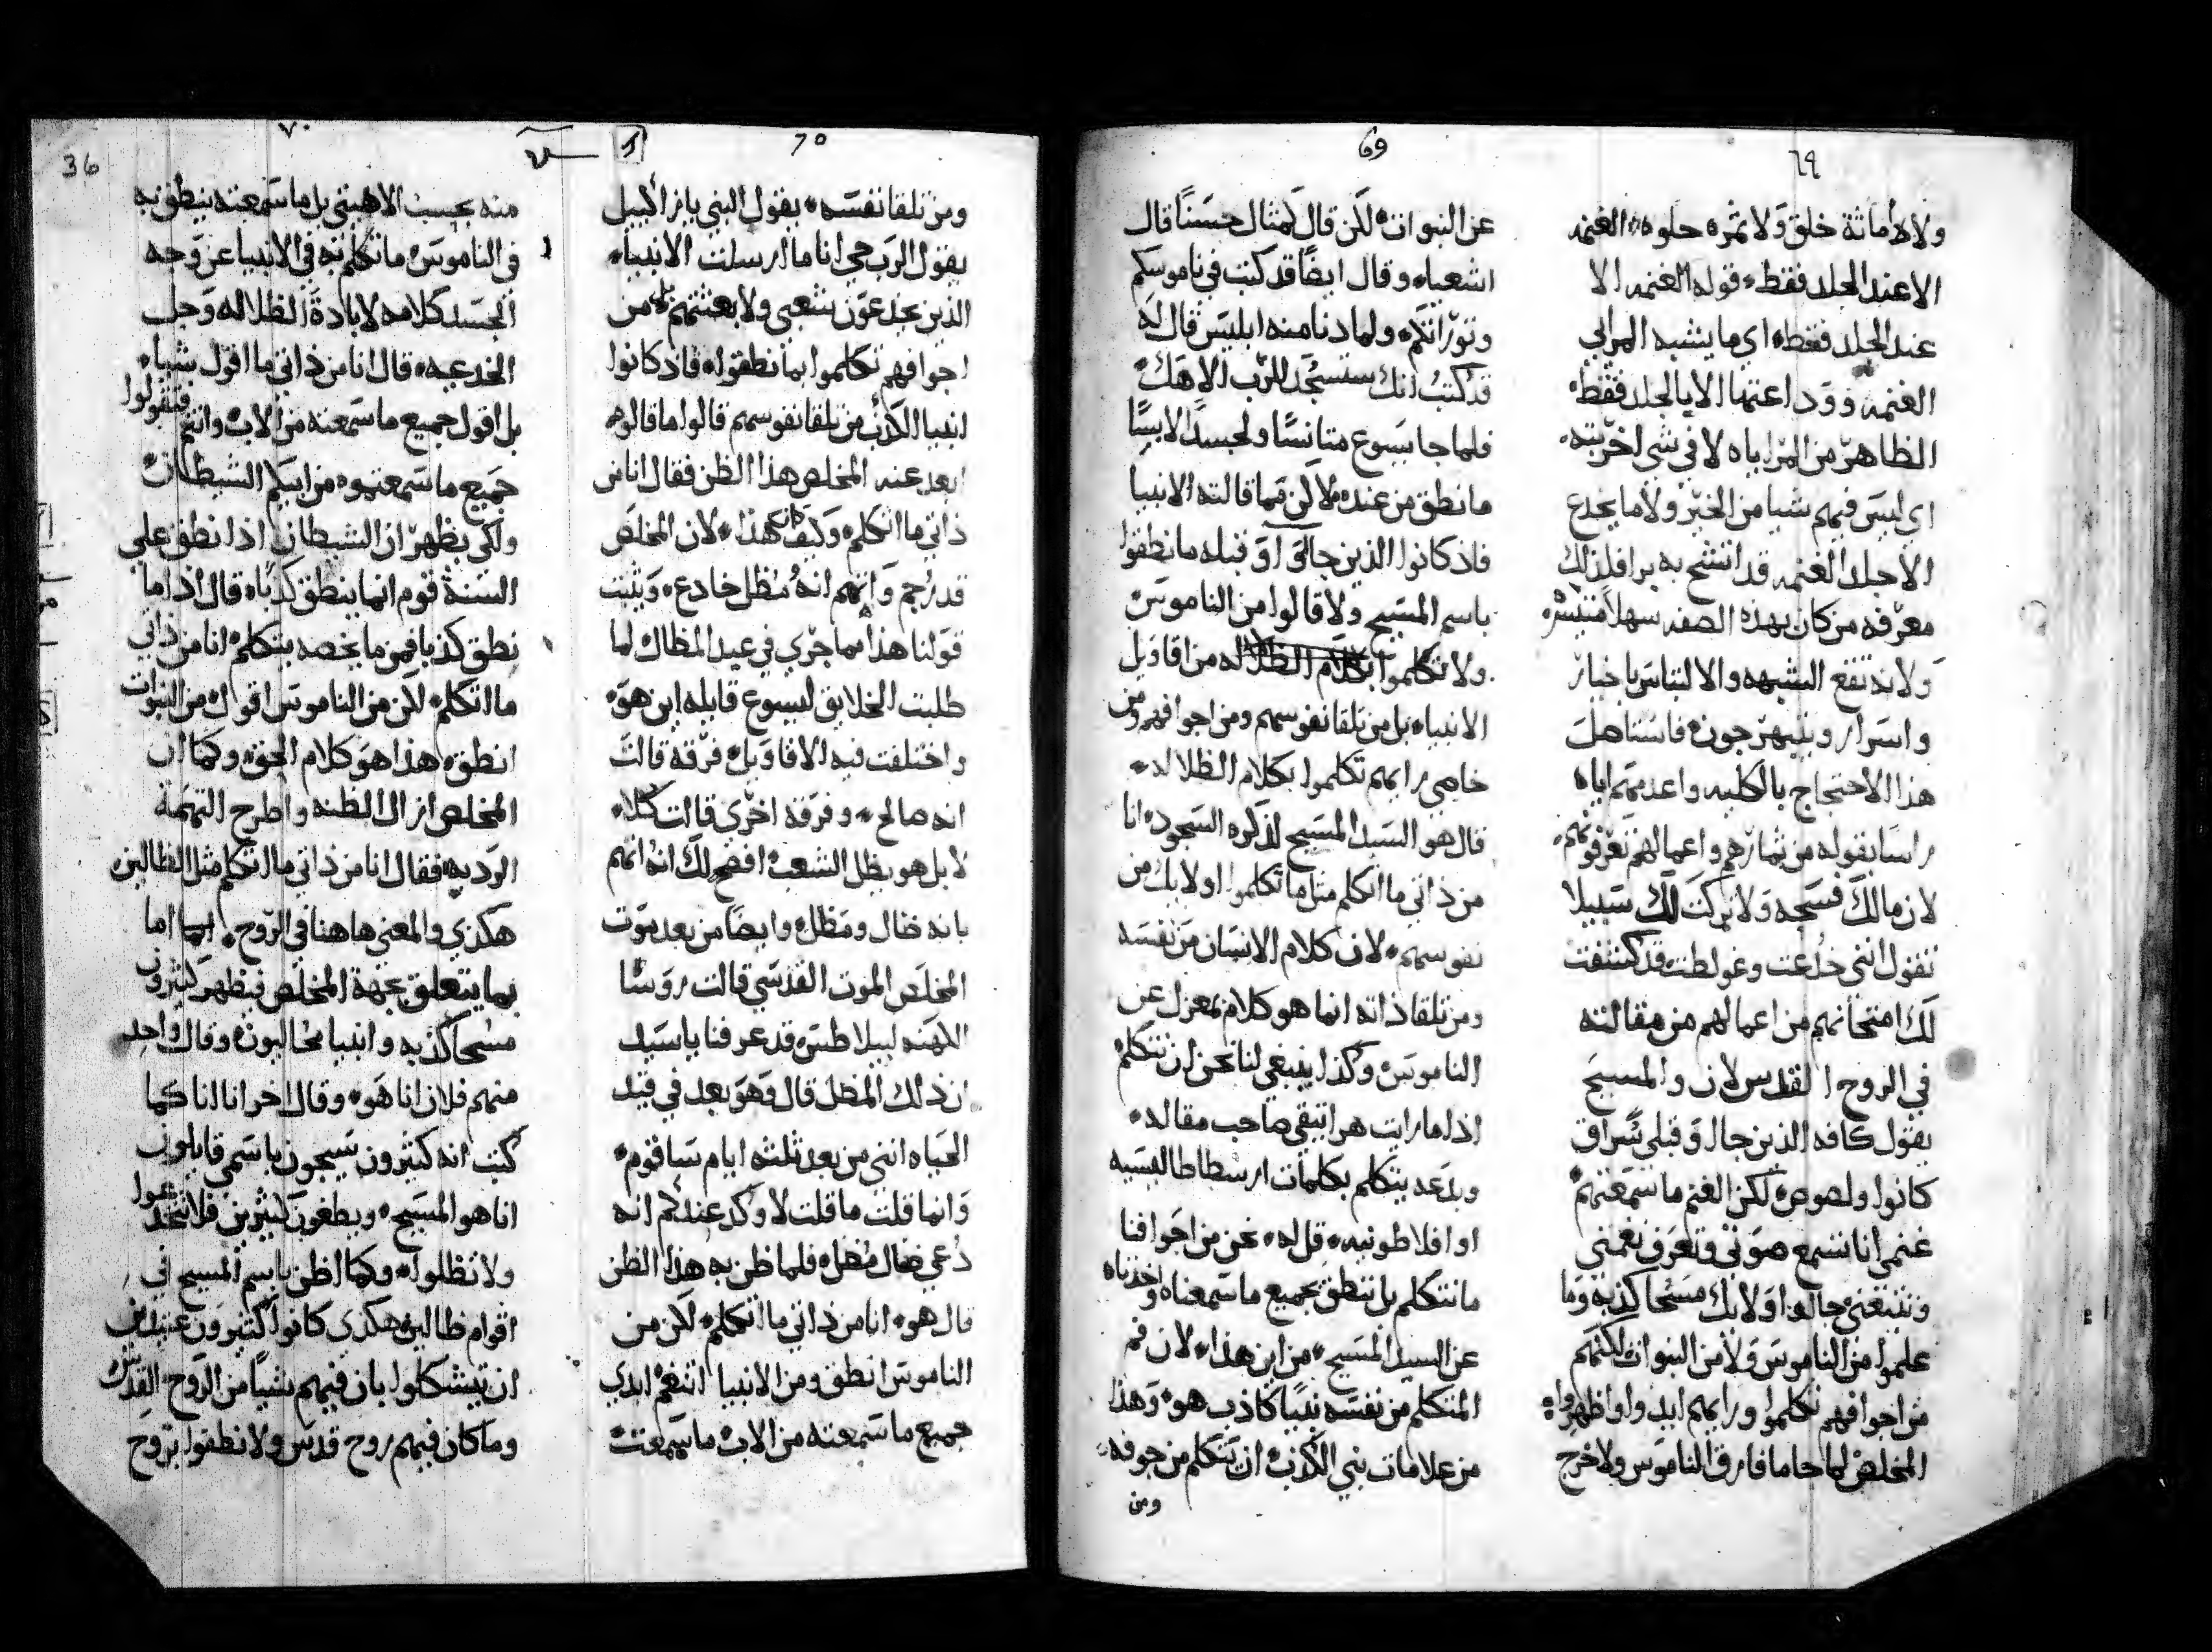 69
٦٩
ولا دماثة خلق ولا ثمره حلوه الغنمه
الا عند الجلد فقط قوله الغنمه الا
عند الجلد فقط اي ما يشبه المرايى
الغنمه وود اعتها الا بالجلد فقط
الظاهر من المراياه لا في شي اخر بته
اي ليس فيهم شيا من الخير ولا ما يخدع
الا جلد الغنمه قد اتشح به برا فلذلك
معرفه من كان بهذه الصفه سهلا متيسره
ولانه تقع الشبهه والالتباس باخبار
واسرار ويلبهرجون فاستاصل
هذا الاحتجاج بالكليه واعدمهم اياه
راسا بقوله من ثمارهم واعمالهم تعرفونهم
لان مالك فسحه ولا تركت لك سبيلا
تقول انني خدعت وغولطت قد كشفت
لك امتحانهم من اعمالهم من مقالته
في الروح القدس لان والمسيح
يقول كافة الذين جاو قبلي سراق
كانوا ولصوص لكن الغنم ما سمعتهم
غنمي انا تسمع صوتي وتعرف نغمتي
وتتبعني جاوا اولايك مسحا كذبه وما
علموا من الناموس ولا من النبوات لكنهم
من اجوافهم تكلموا ورايهم ابدوا واظهروا
المخلص لما جا ما فارق الناموس ولا خرج
عن النبوات لكن قال كمثال حسنا قال
اشعياء وقال ايضا قد كتب في ناموسكم
وتوراتكم ولما دنا منه ابليس قال له
قد كتب انك ستسجد للرب الاهك
فلما جا يسوع متانسا ولجسد لابسا
ما نطق من عنده لكن مما قالته الانبيا
فاذ كانوا الذين جاو قبله ما نطقوا
باسم المسيح ولا قالوا من الناموس
ولا تكلموا بكلام الضلاله من اقاويل
الانبياء بل من تلقا نفوسهم ومن اجوافهم ومن
خاصي رايهم تكلموا بكلام الظلاله
قال هو السيد المسيح لذكره السجود انا
من ذاتي ما اتكلم مثل ما تكلموا اولايك من
نفوسهم لان كلام الانسان من نفسه
ومن تلقا ذاته انما هو كلام بمعزل عن
الناموس وكذا ينبغي لنا نحن ان نتكلم
اذا ما رايت هراتيقي صاحب مقاله
وبدعه يتكلم بكلمات ارسطاطاليسيه
او افلاطونيه قل له نحن من اجوافنا
ما نتكلم بل ننطق بجميع ما سمعناه واخذناه
عن السيد المسيح من اين هذا لان فم
المتكلم من نفسه نبيا كاذب هو وهذا
من علامات بني الكذب ان يتكلم من جوفه
ومن
70
٧٠
36
ومن تلقا نفسه يقول النبي يازاكييل
يقول الرب حي انا ما ارسلت الانبياء
الذين يخدعون شعبي ولا بعثتهم بل من
اجوافهم تكلموا بما نطقوا فاذ كانوا
انبيا الكذب من تلقا نفوسهم قالوا ما قالوه
ابعد عنه المخلص هذا الظن فقال انا من
ذاتي ما اتكلم وكيف كان هذا لان المخلص
قد رجم واتهم انه مظل خادع ويثبت
قولنا هذا مما جري في عيد المظال لما
طلبت الخلايق ليسوع قايله اين هو
واختلفت فيه الاقاويل فرقة قالت
انه صالح وفرقة اخري قالت كلا
لا بل هو يظل الشعب افضح لك انه اتهم
بانه ضال ومظل وايضا من بعد موت
المخلص الموت القدسي قالت روسا
الكهنه لبيلاطس قد عرفنا ياسيد
ان ذلك المظل قال وهو بعد في قيد
الحياه انني من بعد ثلثه ايام ساقوم
وانما قلت ما قلت لاوكد عندكم انه
دعي ضال مضل فلما ظن به هذا الظن
قال هو انا من ذاتي ما اتكلم لكن من
الناموس انطق ومن الانبيا اتنغم ابدي
جميع ما سمعته من الاب ما سمعت
منه بحسب الاهيتي بل ما سمعته ينطق به
في الناموس ما تكلم به في الانبيا عن وجه
الجسد كلامه لابادة الظلاله وحل
الخدعيه قال انا من ذاتي ما اقول شياء
بل اقول جميع ما سمعته من الاب وانتم فتقولوا
جميع ما سمعتموه من ابيكم الشيطان
ولكي يظهر ان الشيطان اذا نطق علي
السنة قوم انما ينطق كذبا قال اذا ما
نطق كذبا فمن ما يخصه يتكلم انا من ذاتي
ما اتكلم لكن من الناموس اقول من النبوات
انطق هذا هو كلام الحق وكما ان
المخلص ازال الظنه واطرح التهمة
الرديه فقال انا من ذاتي ما اتكلم مثل الظالين
هكذي والمعني هاهنا في الروح اما
بما يتعلق بجهة المخلص فيظهر كثيرون
مسحا كذبه وانبيا محالبون وقال واحد
منهم فلان انا هو وقال اخر انا انا كما
كتب انه كثيرون سيجون باسمي قايلون
انا هو المسيح ويطغون كثيرين فلا تنخدعوا
ولا تظلوا وكما الظن باسم المسيح في
اقوام ظالين هكذي كانوا كثيرون عتيدين
ان يتشكلوا بان فيهم شيا من الروح القدس
وما كان فيهم روح قدس ولا نطقوا بروح